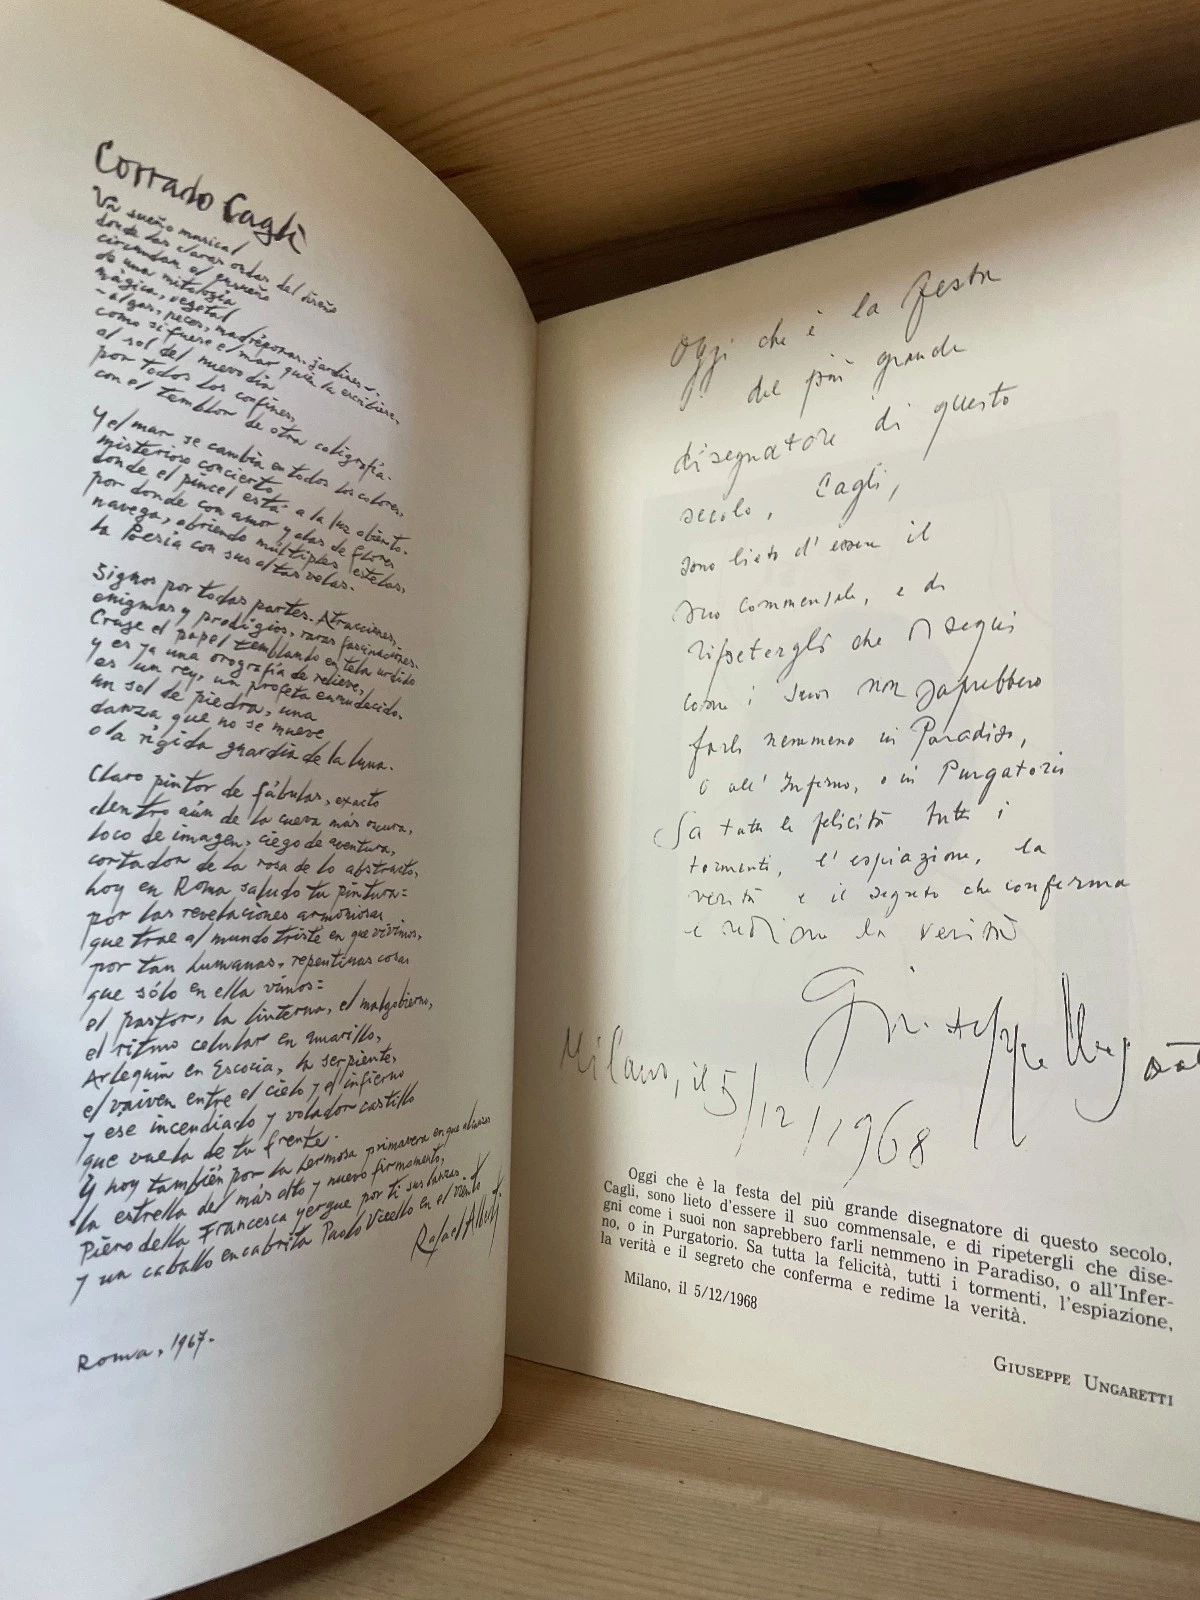 Corrado Cagli
Un sueño musical
donde las claras ondas del diseño
circundan el ensueño
de una mitología
mágica, vegetal
-algas, peces, madréporas, jardines-,
como si fuese el mar quien la escribiese,
al sol del nuevo día
por todos los confines,
con el temblor de otra caligrafía.
Y el mar se cambia en todos los colores,
misterioso concierto
donde el pincel está a la luz abierto.
por donde con amor y alas de flores
navega, abriendo múltiples estelas,
la Poesía con sus altas velas.
Signos por todas partes. Atracciones,
enigmas y prodigios, raras fascinaciones.
Cruje el papel temblando en tela urdido
y es ya una orografía de relieve,
es un rey, un profeta enmudecido,
un sol de piedra, una
danza que no se mueve
o la rígida guardia de la luna.
Claro pintor de fábulas, exacto
dentro aún de la cueva más oscura,
loco de imagen, ciego de aventura,
cortador de la rosa de lo abstracto,
hoy en Roma saludo tu pintura:
por las revelaciones armoniosas
que trae al mundo triste en que vivimos,
por tan humanas, repentinas cosas
que sólo en ella vimos:
el pastor, la linterna, el malgobierno,
el ritmo celular en amarillo,
Arlequín en Escocia, la serpiente,
el vaivén entre el cielo y el infierno
y ese incendiado y volador castillo
que vuela de tu frente.
Y hoy también por la hermosa primavera en que alcanzas
la estrella del más alto y nuevo firmamento,
Piero della Francesca yergue por ti sus lanzas
y un caballo encabrita Paolo Uccello en el viento
Rafael Alberti
Roma, 1967.
Oggi che è la festa
del più grande
disegnatore di questo
secolo, Cagli,
sono lieto d'essere il
suo commensale, e di
ripetergli che disegni
come i suoi non saprebbero
farli nemmeno in Paradiso,
o all'Inferno, o in Purgatorio
Sa tutta la felicità tutti i
tormenti, l'espiazione, la
verità e il segreto che conferma
e redime la verità
Giuseppe Ungaretti
Milano, il 5/12/1968
Oggi che è la festa del più grande disegnatore di questo secolo,
Cagli, sono lieto d'essere il suo commensale, e di ripetergli che dise-
gni come i suoi non saprebbero farli nemmeno in Paradiso, o all'Infer-
no, o in Purgatorio. Sa tutta la felicità, tutti i tormenti, l'espiazione,
la verità e il segreto che conferma e redime la verità.
Milano, il 5/12/1968
GIUSEPPE UNGARETTI